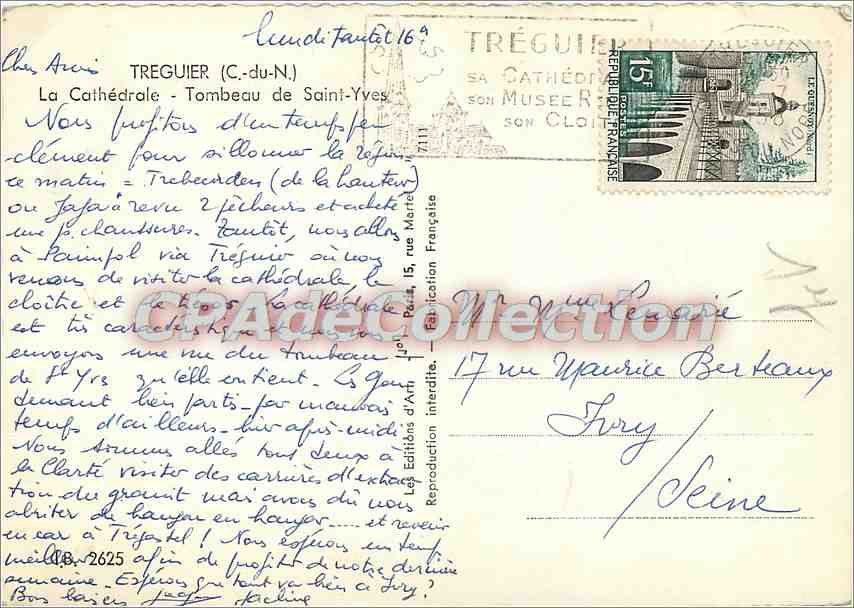 lundi tantôt 16h
Chers Amis
TREGUIER (C.-du-N.)
La Cathédrale - Tombeau de Saint-Yves
Nous profitons d'un temps peu
clément pour sillonner la région
ce matin = Trebeurden (de la hauteur)
ou Jaja a revu 2 pêcheurs et acheté
une p. chaussures. Tantôt, nous allons
à Paimpol via Tréguier où nous
venons de visiter la cathédrale le
cloître et le La cathédrale
est très caractéristique et nous vous
envoyons une vue du tombeau
de St Yves qu'elle contient. Les Gens
demant bien partis - par mauvais
temps d'ailleurs - hier après-midi
Nous sommes allés tous deux à
la Clarté visiter des carrières d'extrac
tion du granit mais avons dû nous
abriter de hangar en hangar ..... et revenir
en car à Trégastel ! Nous espérons un temps
meilleur afin de profiter de notre dernière
semaine. Espérons que tout va bien à Ivry ?
Bons baisers Jacline
P.B. 2625
Les Editions d'Art "Jos", Paris, 15, rue Martel
Reproduction interdite. - Fabrication Française
7111
TRÉGUIER
SA CATHÉDR
SON MUSEE R
SON CLOI
15F
POSTES
REPUBLIQUE FRANÇAISE
LE QUESNOY (NORD)
CPAdeCollection
Mr Mme Lemarié
17 rue Maurice Berteaux
Ivry
/Seine